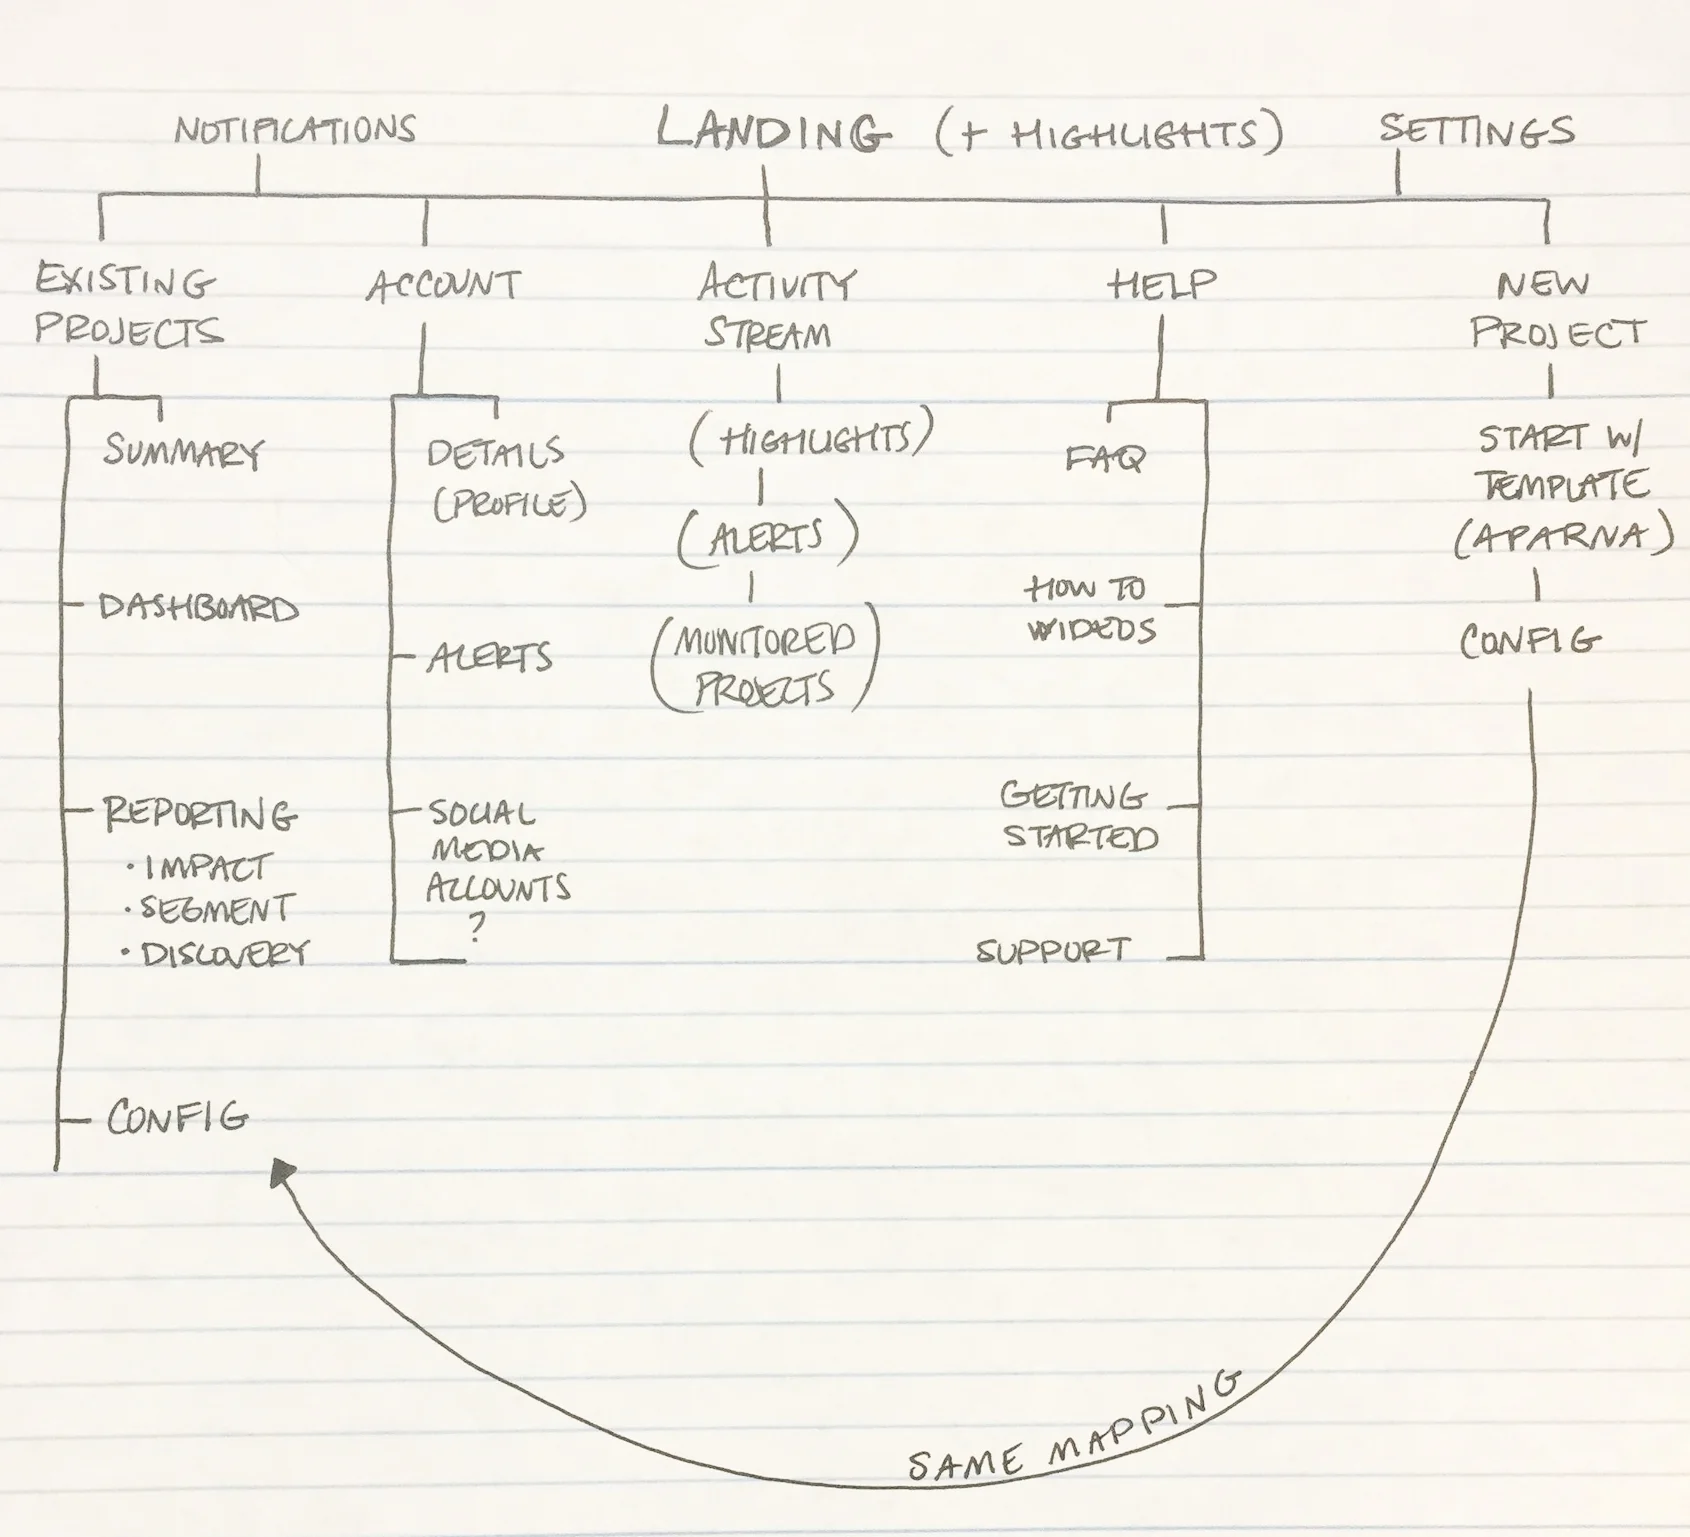 NOTIFICATIONS
LANDING (+ HIGHLIGHTS)
SETTINGS
EXISTING
PROJECTS
SUMMARY
DASHBOARD
REPORTING
• IMPACT
• SEGMENT
• DISCOVERY
CONFIG
ACCOUNT
DETAILS
(PROFILE)
ALERTS
SOCIAL
MEDIA
ACCOUNTS
?
ACTIVITY
STREAM
(HIGHLIGHTS)
(ALERTS)
(MONITORED
PROJECTS)
HELP
FAQ
HOW TO
VIDEOS
GETTING
STARTED
SUPPORT
NEW
PROJECT
START W/
TEMPLATE
(APARNA)
CONFIG
SAME MAPPING